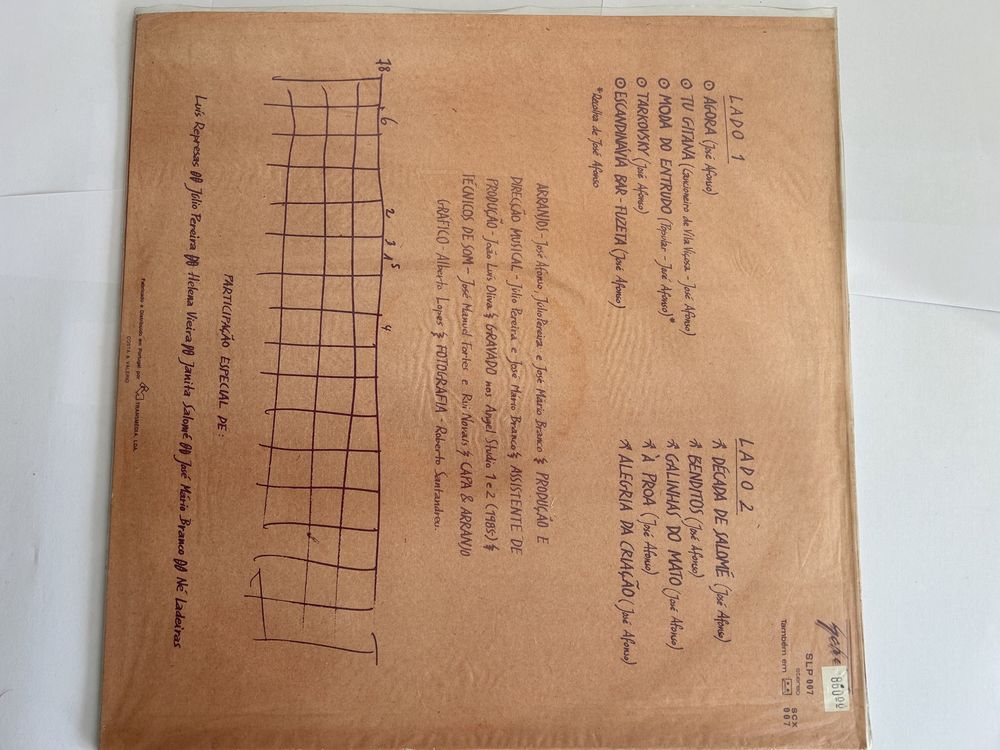 SLP 007
stereo
SCX
007
Também em
860$00
LADO 1
⊙ AGORA (José Afonso)
⊙ TU GITANA (Cancioneiro de Vila Viçosa - José Afonso)
⊙ MODA DO ENTRUDO (Popular - José Afonso)*
⊙ TARKOVSKY (José Afonso)
⊙ ESCANDINÁVIA BAR - FUZETA (José Afonso)
*Recolha de José Afonso
LADO 2
DÉCADA DE SALOMÉ (José Afonso)
BENDITOS (José Afonso)
GALINHAS DO MATO (José Afonso)
À PROA (José Afonso)
ALEGRIA DA CRIAÇÃO (José Afonso)
ARRANJOS - José Afonso, Júlio Pereira e José Mário Branco § PRODUÇÃO E
DIRECÇÃO MUSICAL - Júlio Pereira e José Mário Branco § ASSISTENTE DE
PRODUÇÃO - João Luís Oliva § GRAVADO nos Angel Studio 1 e 2 (1985) §
TÉCNICOS DE SOM - José Manuel Fortes e Rui Novais § CAPA & ARRANJO
GRÁFICO - Alberto Lopes § FOTOGRAFIA - Roberto Santandreu.
78 6 2 3 1 5 4
PARTICIPAÇÃO ESPECIAL DE:
Luís Represas Júlio Pereira Helena Vieira Janita Salomé José Mário Branco Né Ladeiras
Fabricado e Distribuído em Portugal por TRANSMÉDIA, LDA.
COSTA & VALÉRIO